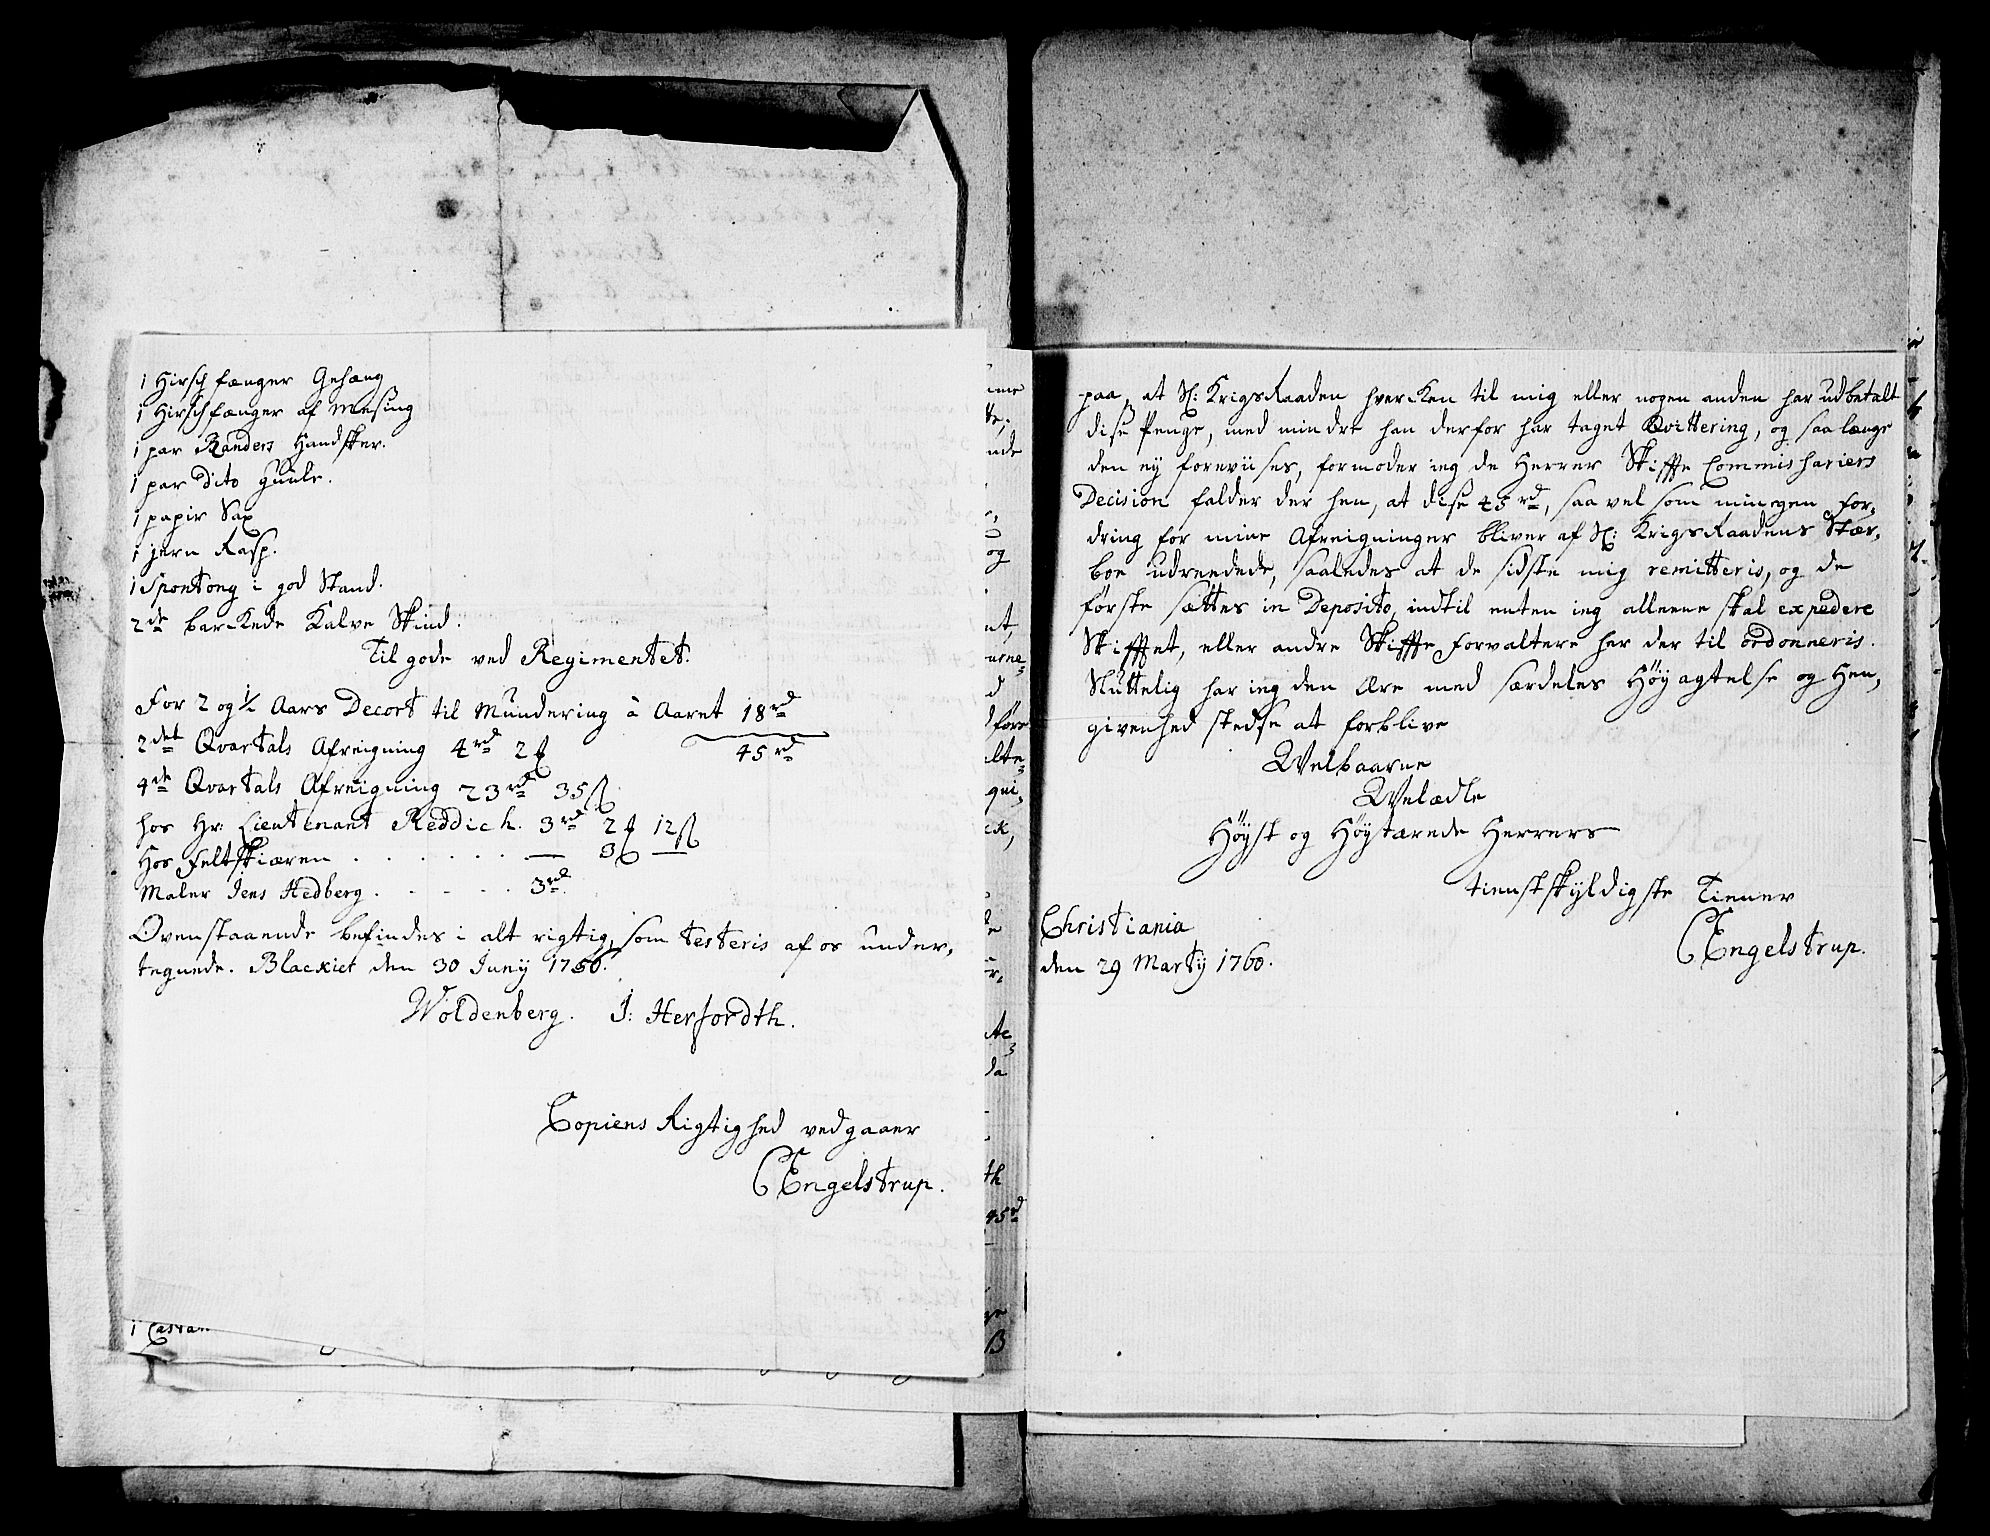 1 Hirschfænger Gehæng
1 Hirschfænger af Mesing
1 par Randers Handsker.
1 par Dito Guule.
1 papir Sax
1 jern Rasp.
1 Spontong i god Stand.
2de barckede Kalve Skind.
Til gode ved Regimentet.
For 2 og ½ Aars Decort til Mundering à Aaret 18 rd
45 rd
2det Qvartals Afreigning 4 rd 2
4de Qvartals Afreigning 23 rd 35 ß
hos Hr: Lieutenant Reddich. 3 rd 2 12 ß
Hos Feltskiæren . . . . . . . — 3 —
Maler Jens Hedberg . . . . . 3 rd.
Ovenstaaende befindes i alt rigtig, som testeris af os under,
tegnede. Blackiet den 30 Juny 1750.
Woldenberg. J: Herfordth.
Copiens Rigtighed vedgaaer
CEngelstrup.
paa, at Sl: KrigsRaaden hvercken til mig eller nogen anden har udbetalt
dise Penge, med mindre han derfor har taget Qvittering, og saa længe
den ey foreviises, formoder ieg de Herrer Skiffte Commissariers
Decision falder der hen, at dise 45 rd, saa vel som min egen For,
dring for mine Afreigninger bliver af Sl: KrigsRaadens Stær,
boe udreedede, saaledes at de sidste mig remitteris, og de
første sættes in Deposito, indtil enten ieg alleene skal expedere
Skifftet, eller andre Skiffte Forvaltere her der til ordonneris.
Sluttelig har ieg den Ære med særdeles Høyagtelse og Hen,
givenhed stedse at forblive
Welbaarne
Welædle
Høyst og Høytærede Herrers
tienstskyldigste Tiener
Christiania
CEngelstrup.
den 29 Marty 1760.